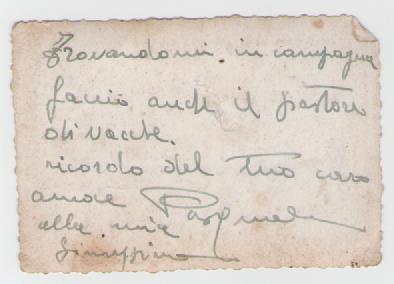 Trovandomi in campagna
faccio anche il pastore
di vacche.
ricordo del tuo caro
amore Pasquale
alla mia
Giuseppina